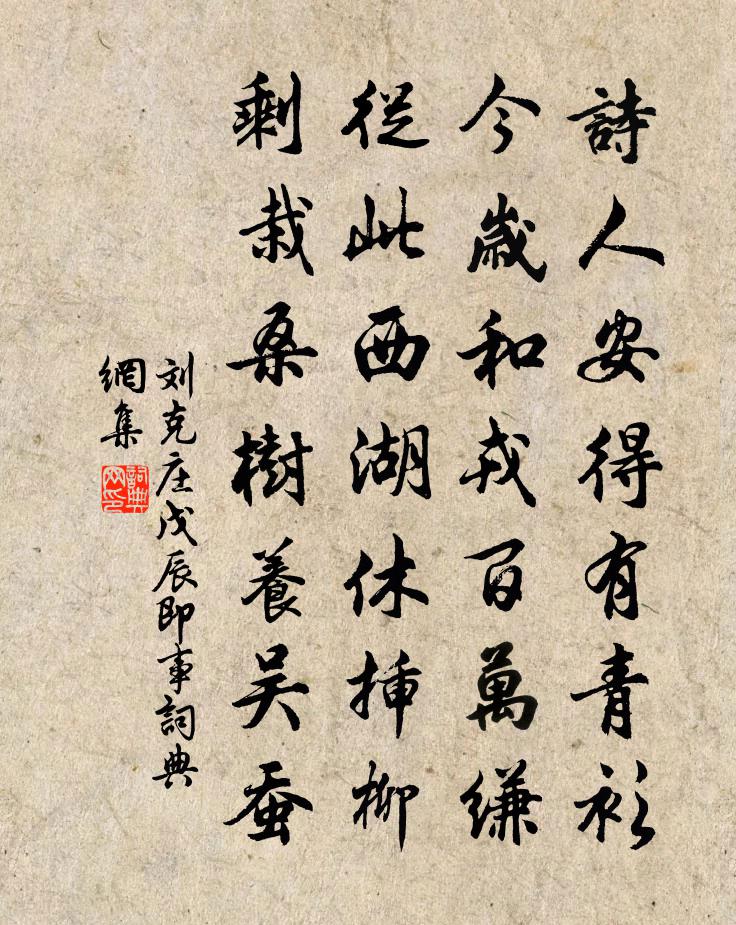 詩人安得有青衫
今歲和戎百萬縑
從此西湖休插柳
剩栽桑樹養吳蚕
刘克庄戊辰即事詞典
網集
詞典
网印